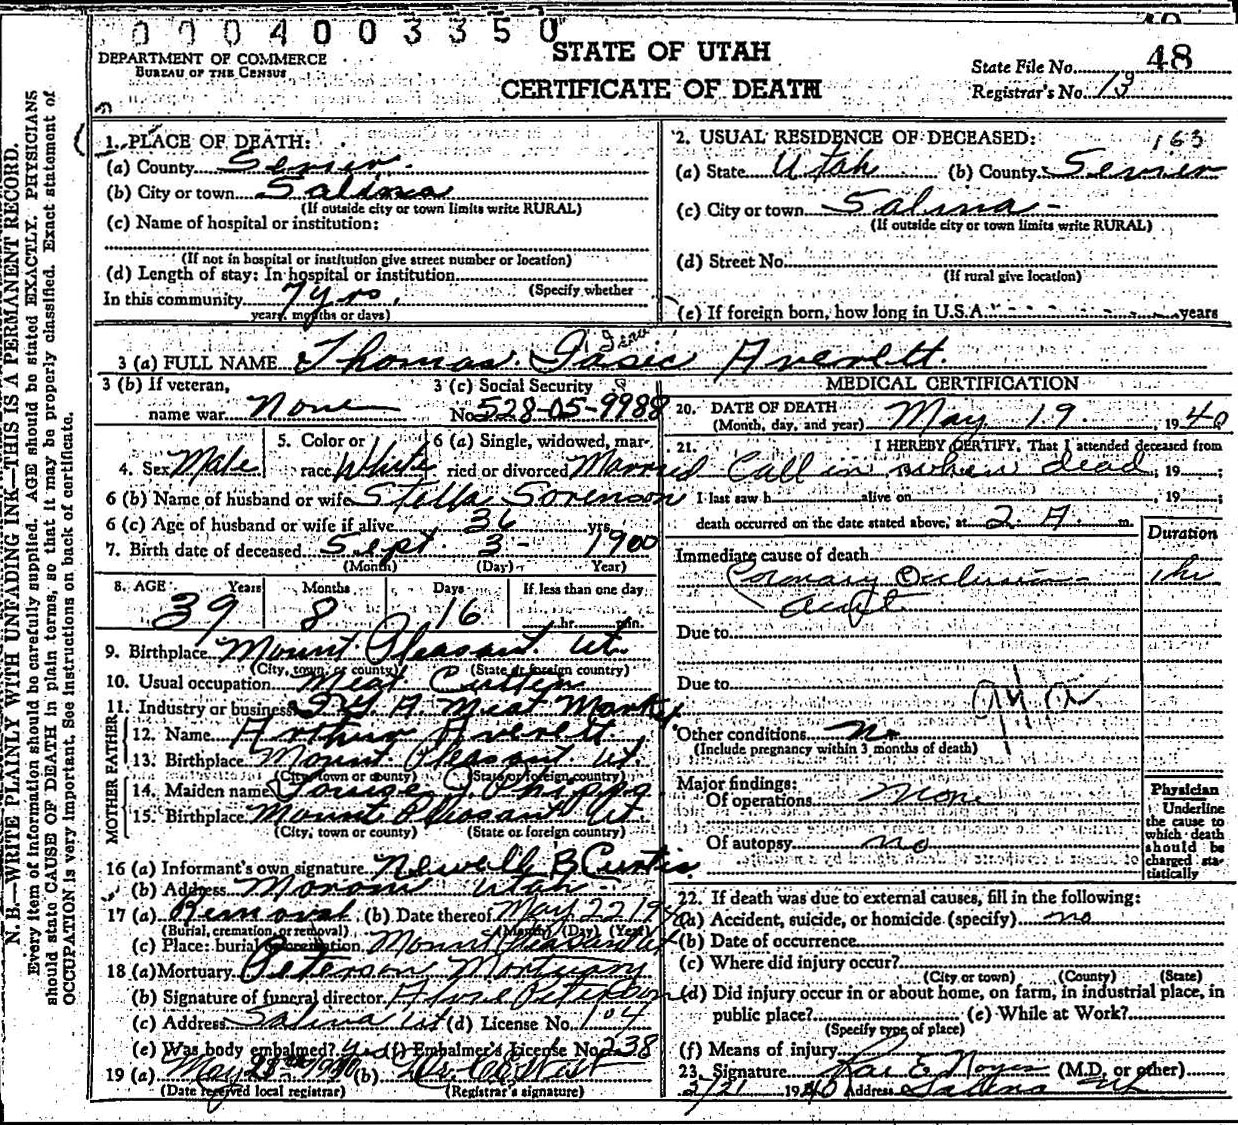 0 0 0 4 0 0 3 3 5 0
DEPARTMENT OF COMMERCE
BUREAU OF THE CENSUS
STATE OF UTAH
CERTIFICATE OF DEATH
State File No. 48
Registrar's No. 13
N. B.—WRITE PLAINLY WITH UNFADING INK—THIS IS A PERMANENT RECORD.
Every item of information should be carefully supplied. AGE should be stated EXACTLY. PHYSICIANS
should state CAUSE OF DEATH in plain terms, so that it may be properly classified. Exact statement of
OCCUPATION is very important. See instructions on back of certificate.
1. PLACE OF DEATH:
(a) County Sevier
(b) City or town Salina
(If outside city or town limits write RURAL)
(c) Name of hospital or institution:
(If not in hospital or institution give street number or location)
(d) Length of stay: In hospital or institution
(Specify whether
In this community 7 yrs.
years, months or days)
2. USUAL RESIDENCE OF DECEASED: 163
(a) State Utah (b) County Sevier
(c) City or town Salina
(If outside city or town limits write RURAL)
(d) Street No.
(If rural give location)
(e) If foreign born, how long in U.S.A. years
3 (a) FULL NAME Thomas Averett.
3 (b) If veteran,
name war None
3 (c) Social Security
No. 528-05-9988
4. Sex Male
5. Color or
race White
6 (a) Single, widowed, mar-
ried or divorced Married
6 (b) Name of husband or wife Stella Sorenson
6 (c) Age of husband or wife if alive 36 yrs.
7. Birth date of deceased Sept. 3 - 1900
(Month) (Day) Year)
8. AGE Years Months Days If less than one day
39 8 16 hr. min.
9. Birthplace Mount Pleasant Ut.
(City, town, or county) (State or foreign country)
10. Usual occupation Meat Cutter
11. Industry or business Meat Market
FATHER
12. Name Arthur Averett
13. Birthplace Mount Pleasant Ut.
(City, town or county) (State or foreign country)
MOTHER
14. Maiden name Phipps
15. Birthplace Mount Pleasant Ut.
(City, town or county) (State or foreign country)
16 (a) Informant's own signature Newell B Curtis
(b) Address Moroni Utah
17 (a) Removal (b) Date thereof May 22 1940
(Burial, cremation, or removal) (Month) (Day) (Year)
(c) Place: burial or cremation Mount Pleasant Ut
18 (a) Mortuary Peterson Mortuary
(b) Signature of funeral director Peterson
(c) Address Salina Ut (d) License No. 104
(e) Was body embalmed? Yes (f) Embalmer's License No. 238
19 (a) May 1940 (b) West
(Date received local registrar) (Registrar's signature)
MEDICAL CERTIFICATION
20. DATE OF DEATH
(Month, day, and year) May 19, 1940
21. I HEREBY CERTIFY, That I attended deceased from
Call in when dead, 19 ;
I last saw h alive on , 19 ;
death occurred on the date stated above, at 2 A. m.
Duration
Immediate cause of death
Coronary Occlusion 1 hr
Due to
Due to
94 a
Other conditions no
(Include pregnancy within 3 months of death)
Major findings:
Of operations none
Of autopsy no
Physician
Underline
the cause to
which death
should be
charged sta-
tistically
22. If death was due to external causes, fill in the following:
(a) Accident, suicide, or homicide (specify) no
(b) Date of occurrence
(c) Where did injury occur?
(City or town) (County) (State)
(d) Did injury occur in or about home, on farm, in industrial place, in
public place? (e) While at Work?
(Specify type of place)
(f) Means of injury
23. Signature Rae E Noyes (M.D. or other)
5/21 1940 Address Salina Ut